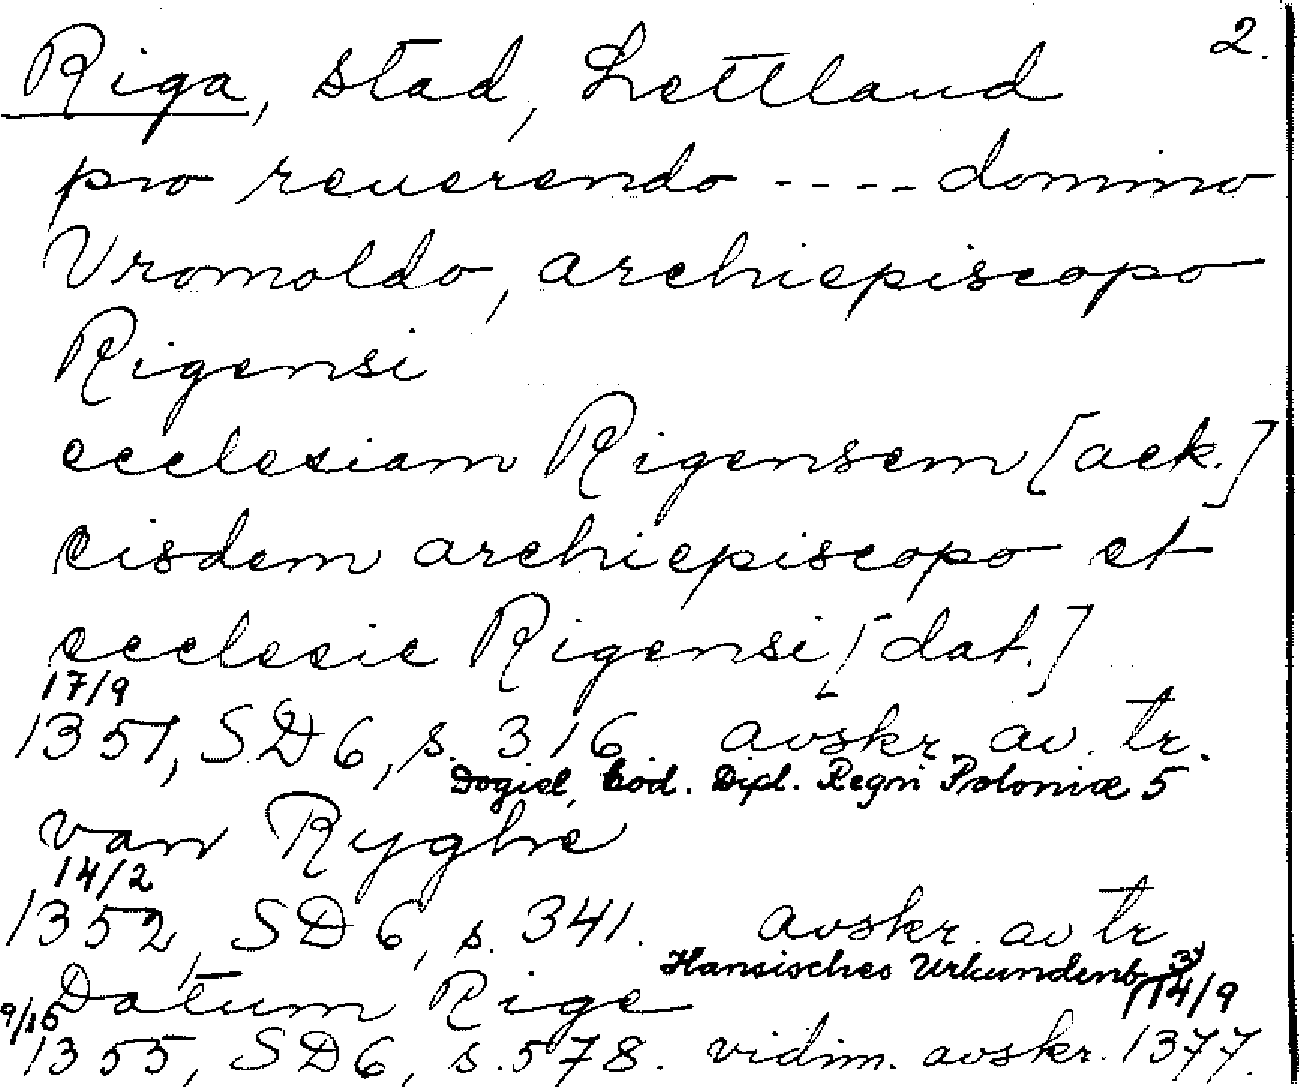 2.
Riga, stad, Lettland
pro reuerendo ---- domino
Vromoldo, archiepiscopo
Rigensi
ecclesiam Rigensem [ack.]
eisdem archiepiscopo et
ecclesie Rigensi [dat.]
17/9
1351, SD 6, s. 316. avskr. av. tr.
Dogiel, Cod. Dipl. Regni Poloniæ 5
van Ryghe
14/2
1352, SD 6, s. 341. avskr. av tr
Hansisches Urkundenb. 3
Datum Rige 14/9
1355, SD 6, s. 578. vidim. avskr. 1377.